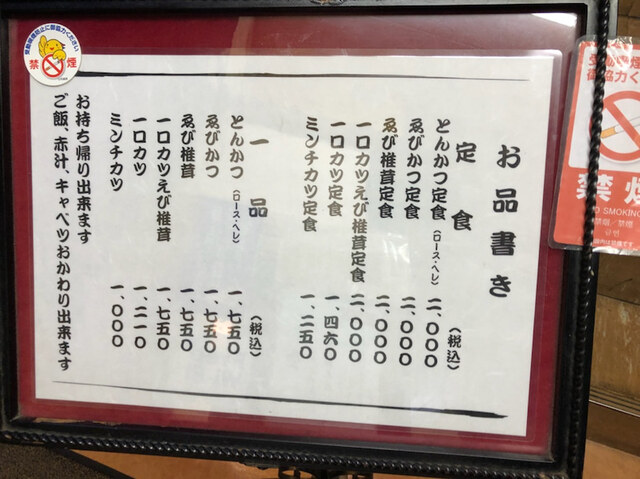 お品書き
定食
(税込)
とんかつ定食(ロース・ヘレ) 二、〇〇〇
ゑびかつ定食 二、〇〇〇
ゑび椎茸定食 二、〇〇〇
一口カツえび椎茸定食 二、〇〇〇
一口カツ定食 一、四六〇
ミンチカツ定食 一、二五〇
一品
(税込)
とんかつ(ロース・ヘレ) 一、七五〇
ゑびかつ 一、七五〇
ゑび椎茸 一、七五〇
一口カツえび椎茸 一、七五〇
一口カツ 一、二一〇
ミンチカツ 一、〇〇〇
お持ち帰り出来ます
ご飯、赤汁、キャベツおかわり出来ます
受動喫煙防止に御協力ください
禁煙
禁煙
NO SMOKING